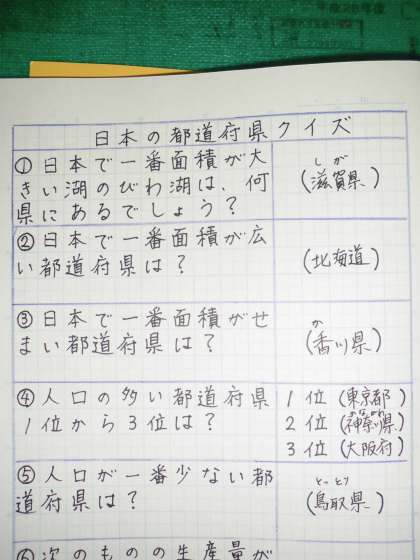 平成28年度
日本の都道府県クイズ
①日本で一番面積が大
きい湖のびわ湖は、何
県にあるでしょう?
しが
(滋賀県)
②日本で一番面積が広
い都道府県は?
(北海道)
③日本で一番面積がせ
まい都道府県は?
か
(香川県)
④人口の多い都道府県
1位から3位は?
1位(東京都)
かながわ
2位(神奈川県)
3位(大阪府)
⑤人口が一番少ない都
道府県は?
とっとり
(鳥取県)
⑥次のものの生産量が